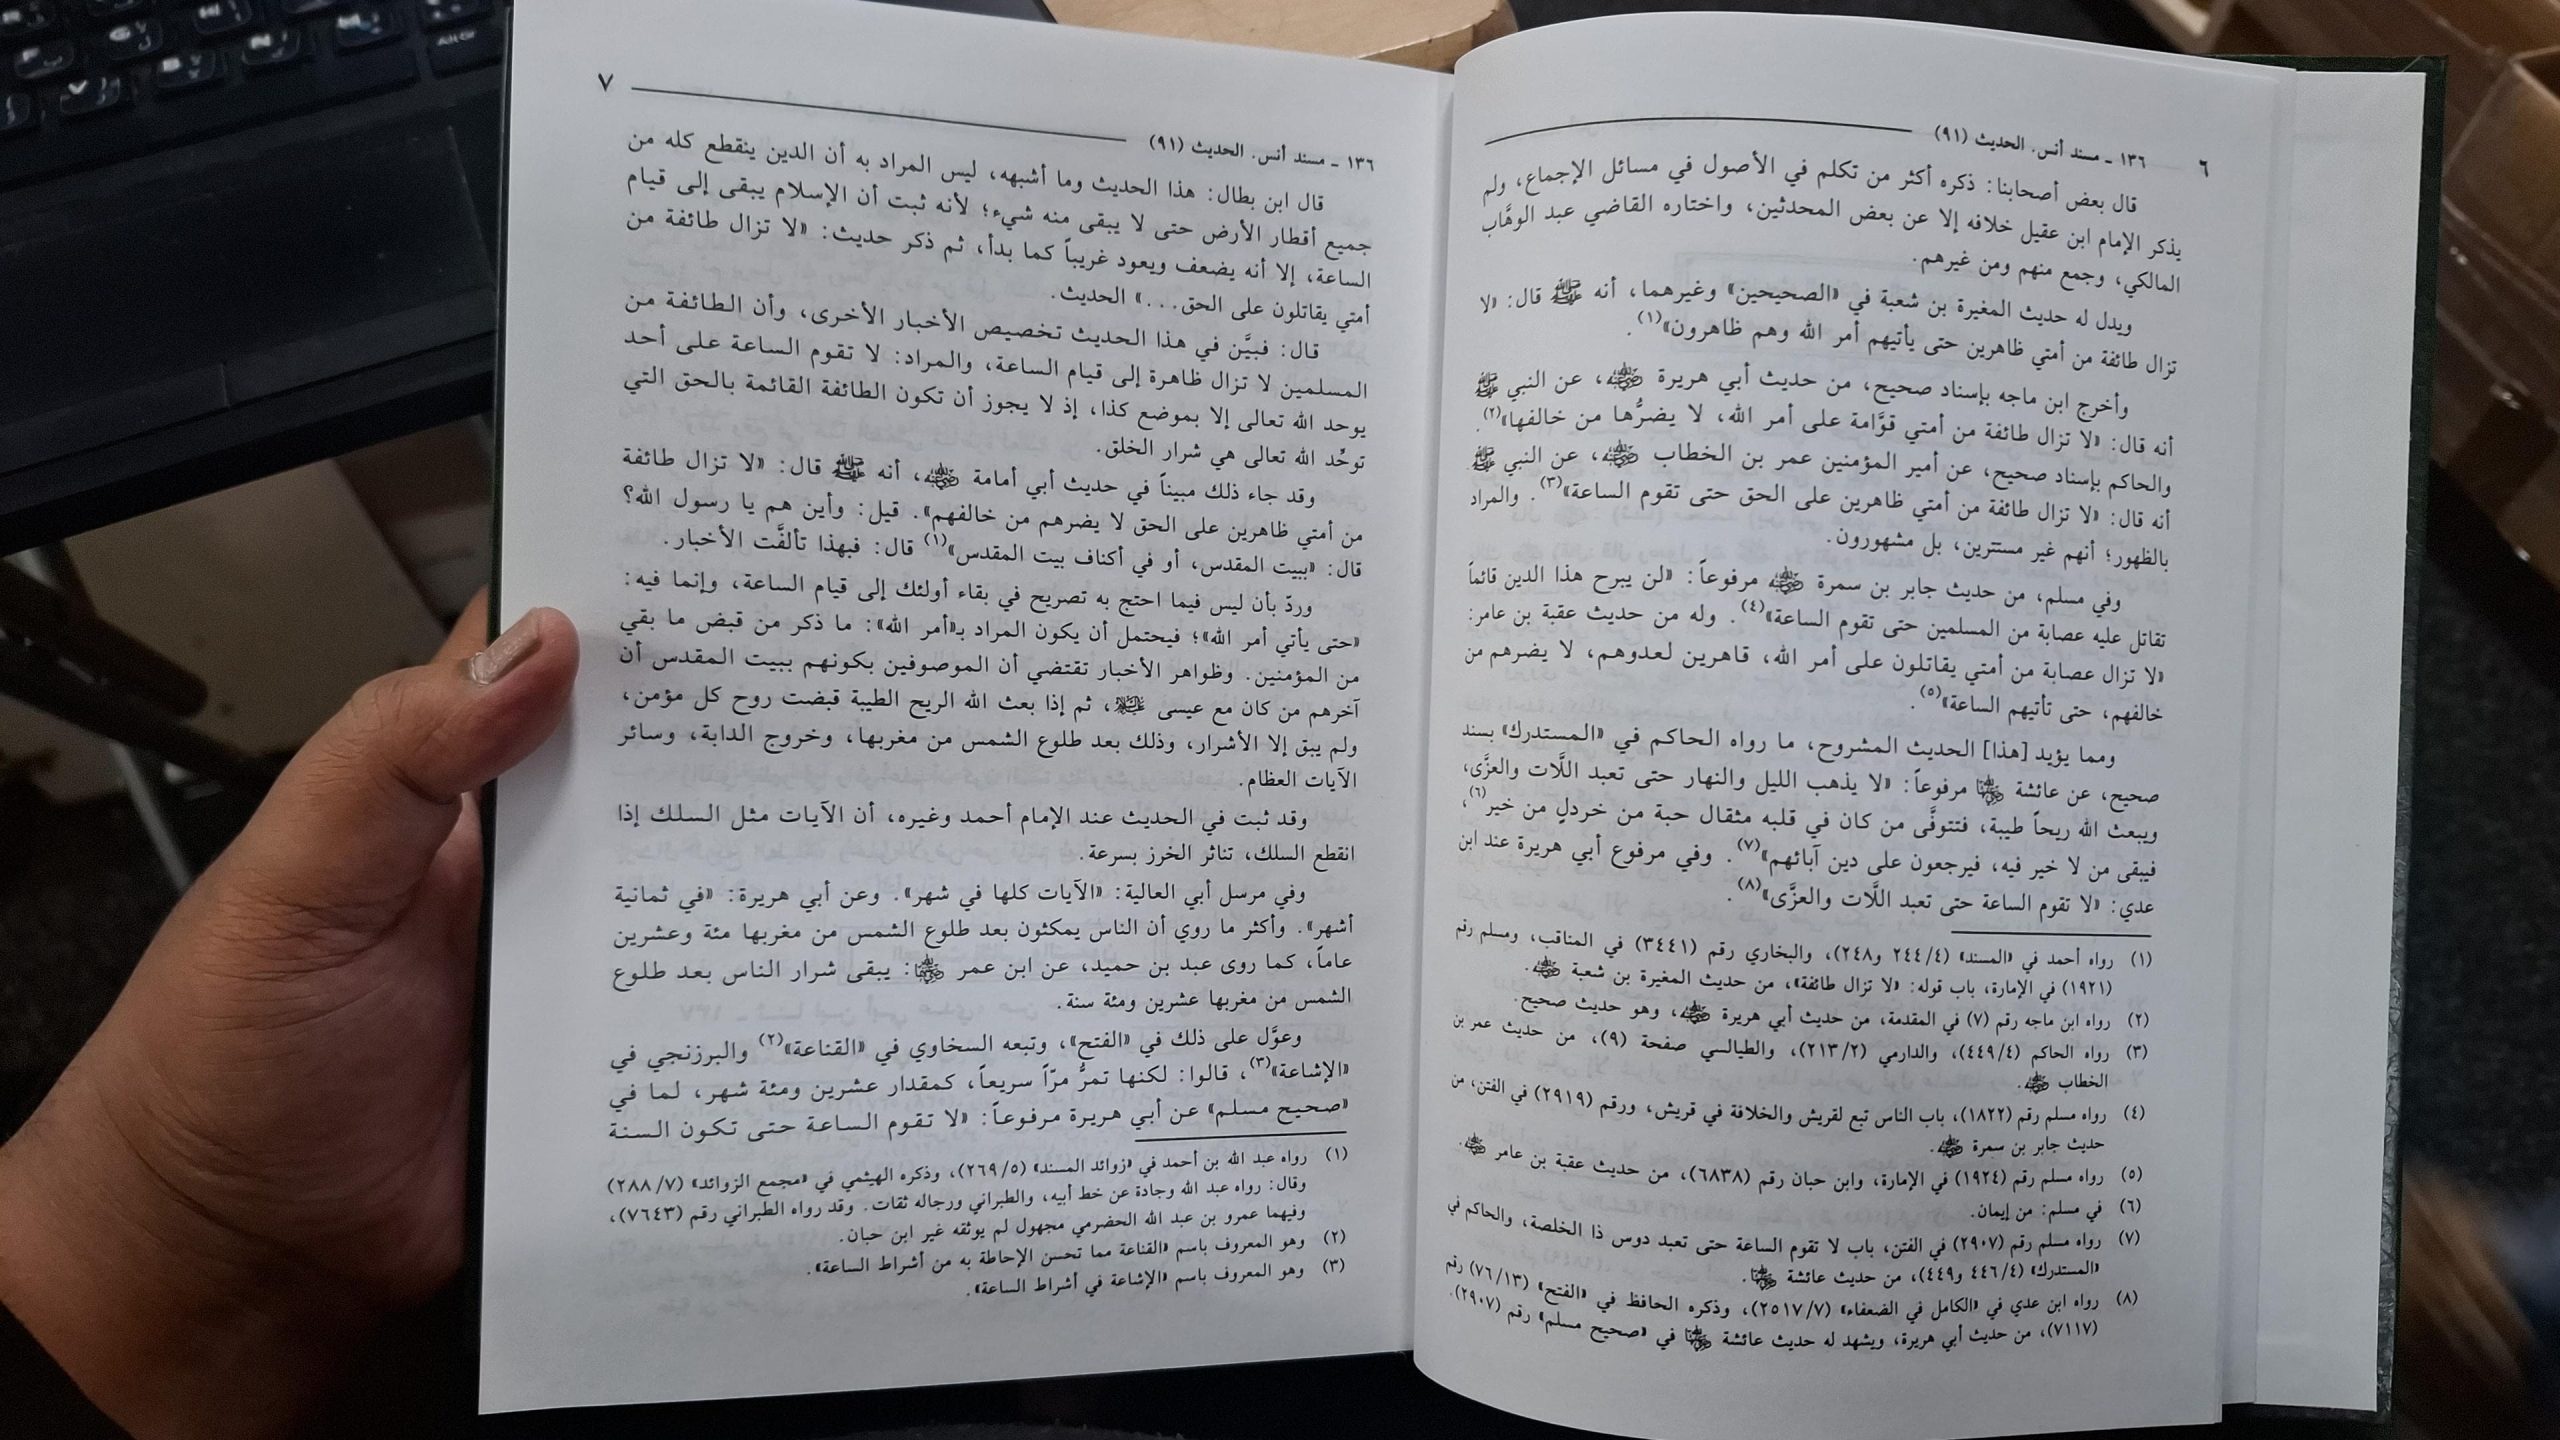 ٦
١٣٦ ـ مسند أنس. الحديث (٩١)
قال بعض أصحابنا: ذكره أكثر من تكلم في الأصول في مسائل الإجماع، ولم
يذكر الإمام ابن عقيل خلافه إلا عن بعض المحدثين، واختاره القاضي عبد الوهَّاب
المالكي، وجمع منهم ومن غيرهم.
ويدل له حديث المغيرة بن شعبة في «الصحيحين» وغيرهما، أنه ﷺ قال: «لا
تزال طائفة من أمتي ظاهرين حتى يأتيهم أمر الله وهم ظاهرون»(١).
وأخرج ابن ماجه بإسناد صحيح، من حديث أبي هريرة رضي الله عنه، عن النبي ﷺ
أنه قال: «لا تزال طائفة من أمتي قوَّامة على أمر الله، لا يضرُّها من خالفها»(٢).
والحاكم بإسناد صحيح، عن أمير المؤمنين عمر بن الخطاب رضي الله عنه، عن النبي ﷺ
أنه قال: «لا تزال طائفة من أمتي ظاهرين على الحق حتى تقوم الساعة»(٣). والمراد
بالظهور؛ أنهم غير مستترين، بل مشهورون.
وفي مسلم، من حديث جابر بن سمرة رضي الله عنه مرفوعاً: «لن يبرح هذا الدين قائماً
تقاتل عليه عصابة من المسلمين حتى تقوم الساعة»(٤). وله من حديث عقبة بن عامر:
«لا تزال عصابة من أمتي يقاتلون على أمر الله، قاهرين لعدوهم، لا يضرهم من
خالفهم، حتى تأتيهم الساعة»(٥).
ومما يؤيد [هذا] الحديث المشروح، ما رواه الحاكم في «المستدرك» بسند
صحيح، عن عائشة رضي الله عنها مرفوعاً: «لا يذهب الليل والنهار حتى تعبد اللَّات والعزَّى،
ويبعث الله ريحاً طيبة، فتتوفَّى من كان في قلبه مثقال حبة من خردلٍ من خير(٦)،
فيبقى من لا خير فيه، فيرجعون على دين آبائهم»(٧). وفي مرفوع أبي هريرة عند ابن
عدي: «لا تقوم الساعة حتى تعبد اللَّات والعزَّى»(٨).
(١) رواه أحمد في «المسند» (٤/ ٢٤٤ و٢٤٨)، والبخاري رقم (٣٤٤١) في المناقب، ومسلم رقم
(١٩٢١) في الإمارة، باب قوله: «لا تزال طائفة»، من حديث المغيرة بن شعبة رضي الله عنه.
(٢) رواه ابن ماجه رقم (٧) في المقدمة، من حديث أبي هريرة رضي الله عنه، وهو حديث صحيح.
(٣) رواه الحاكم (٤/ ٤٤٩)، والدارمي (٢/ ٢١٣)، والطيالسي صفحة (٩)، من حديث عمر بن
الخطاب رضي الله عنه.
(٤) رواه مسلم رقم (١٨٢٢)، باب الناس تبع لقريش والخلافة في قريش، ورقم (٢٩١٩) في الفتن، من
حديث جابر بن سمرة رضي الله عنه.
(٥) رواه مسلم رقم (١٩٢٤) في الإمارة، وابن حبان رقم (٦٨٣٨)، من حديث عقبة بن عامر رضي الله عنه.
(٦) في مسلم: من إيمان.
(٧) رواه مسلم رقم (٢٩٠٧) في الفتن، باب لا تقوم الساعة حتى تعبد دوس ذا الخلصة، والحاكم في
«المستدرك» (٤/ ٤٤٦ و٤٤٩)، من حديث عائشة رضي الله عنها.
(٨) رواه ابن عدي في «الكامل في الضعفاء» (٧/ ٢٥١٧)، وذكره الحافظ في «الفتح» (١٣/ ٧٦) رقم
(٧١١٧)، من حديث أبي هريرة، ويشهد له حديث عائشة رضي الله عنها في «صحيح مسلم» رقم (٢٩٠٧).
١٣٦ ـ مسند أنس. الحديث (٩١)
٧
قال ابن بطال: هذا الحديث وما أشبهه، ليس المراد به أن الدين ينقطع كله من
جميع أقطار الأرض حتى لا يبقى منه شيء؛ لأنه ثبت أن الإسلام يبقى إلى قيام
الساعة، إلا أنه يضعف ويعود غريباً كما بدأ، ثم ذكر حديث: «لا تزال طائفة من
أمتي يقاتلون على الحق...» الحديث.
قال: فبيَّن في هذا الحديث تخصيص الأخبار الأخرى، وأن الطائفة من
المسلمين لا تزال ظاهرة إلى قيام الساعة، والمراد: لا تقوم الساعة على أحد
يوحد الله تعالى إلا بموضع كذا، إذ لا يجوز أن تكون الطائفة القائمة بالحق التي
توحِّد الله تعالى هي شرار الخلق.
وقد جاء ذلك مبيناً في حديث أبي أمامة رضي الله عنه، أنه ﷺ قال: «لا تزال طائفة
من أمتي ظاهرين على الحق لا يضرهم من خالفهم». قيل: وأين هم يا رسول الله؟
قال: «ببيت المقدس، أو في أكناف بيت المقدس»(١) قال: فبهذا تألفَّت الأخبار.
وردّ بأن ليس فيما احتج به تصريح في بقاء أولئك إلى قيام الساعة، وإنما فيه:
«حتى يأتي أمر الله»؛ فيحتمل أن يكون المراد بـ«أمر الله»: ما ذكر من قبض ما بقي
من المؤمنين. وظواهر الأخبار تقتضي أن الموصوفين بكونهم ببيت المقدس أن
آخرهم من كان مع عيسى عليه السلام، ثم إذا بعث الله الريح الطيبة قبضت روح كل مؤمن،
ولم يبق إلا الأشرار، وذلك بعد طلوع الشمس من مغربها، وخروج الدابة، وسائر
الآيات العظام.
وقد ثبت في الحديث عند الإمام أحمد وغيره، أن الآيات مثل السلك إذا
انقطع السلك، تناثر الخرز بسرعة.
وفي مرسل أبي العالية: «الآيات كلها في شهر». وعن أبي هريرة: «في ثمانية
أشهر». وأكثر ما روي أن الناس يمكثون بعد طلوع الشمس من مغربها مئة وعشرين
عاماً، كما روى عبد بن حميد، عن ابن عمر رضي الله عنهما: يبقى شرار الناس بعد طلوع
الشمس من مغربها عشرين ومئة سنة.
وعوَّل على ذلك في «الفتح»، وتبعه السخاوي في «القناعة»(٢) والبرزنجي في
«الإشاعة»(٣)، قالوا: لكنها تمرُّ مرّاً سريعاً، كمقدار عشرين ومئة شهر، لما في
«صحيح مسلم» عن أبي هريرة مرفوعاً: «لا تقوم الساعة حتى تكون السنة
(١) رواه عبد الله بن أحمد في «زوائد المسند» (٥/ ٢٦٩)، وذكره الهيثمي في «مجمع الزوائد» (٧/ ٢٨٨)
وقال: رواه عبد الله وجادة عن خط أبيه، والطبراني ورجاله ثقات. وقد رواه الطبراني رقم (٧٦٤٣)،
وفيهما عمرو بن عبد الله الحضرمي مجهول لم يوثقه غير ابن حبان.
(٢) وهو المعروف باسم «القناعة مما تحسن الإحاطة به من أشراط الساعة».
(٣) وهو المعروف باسم «الإشاعة في أشراط الساعة».